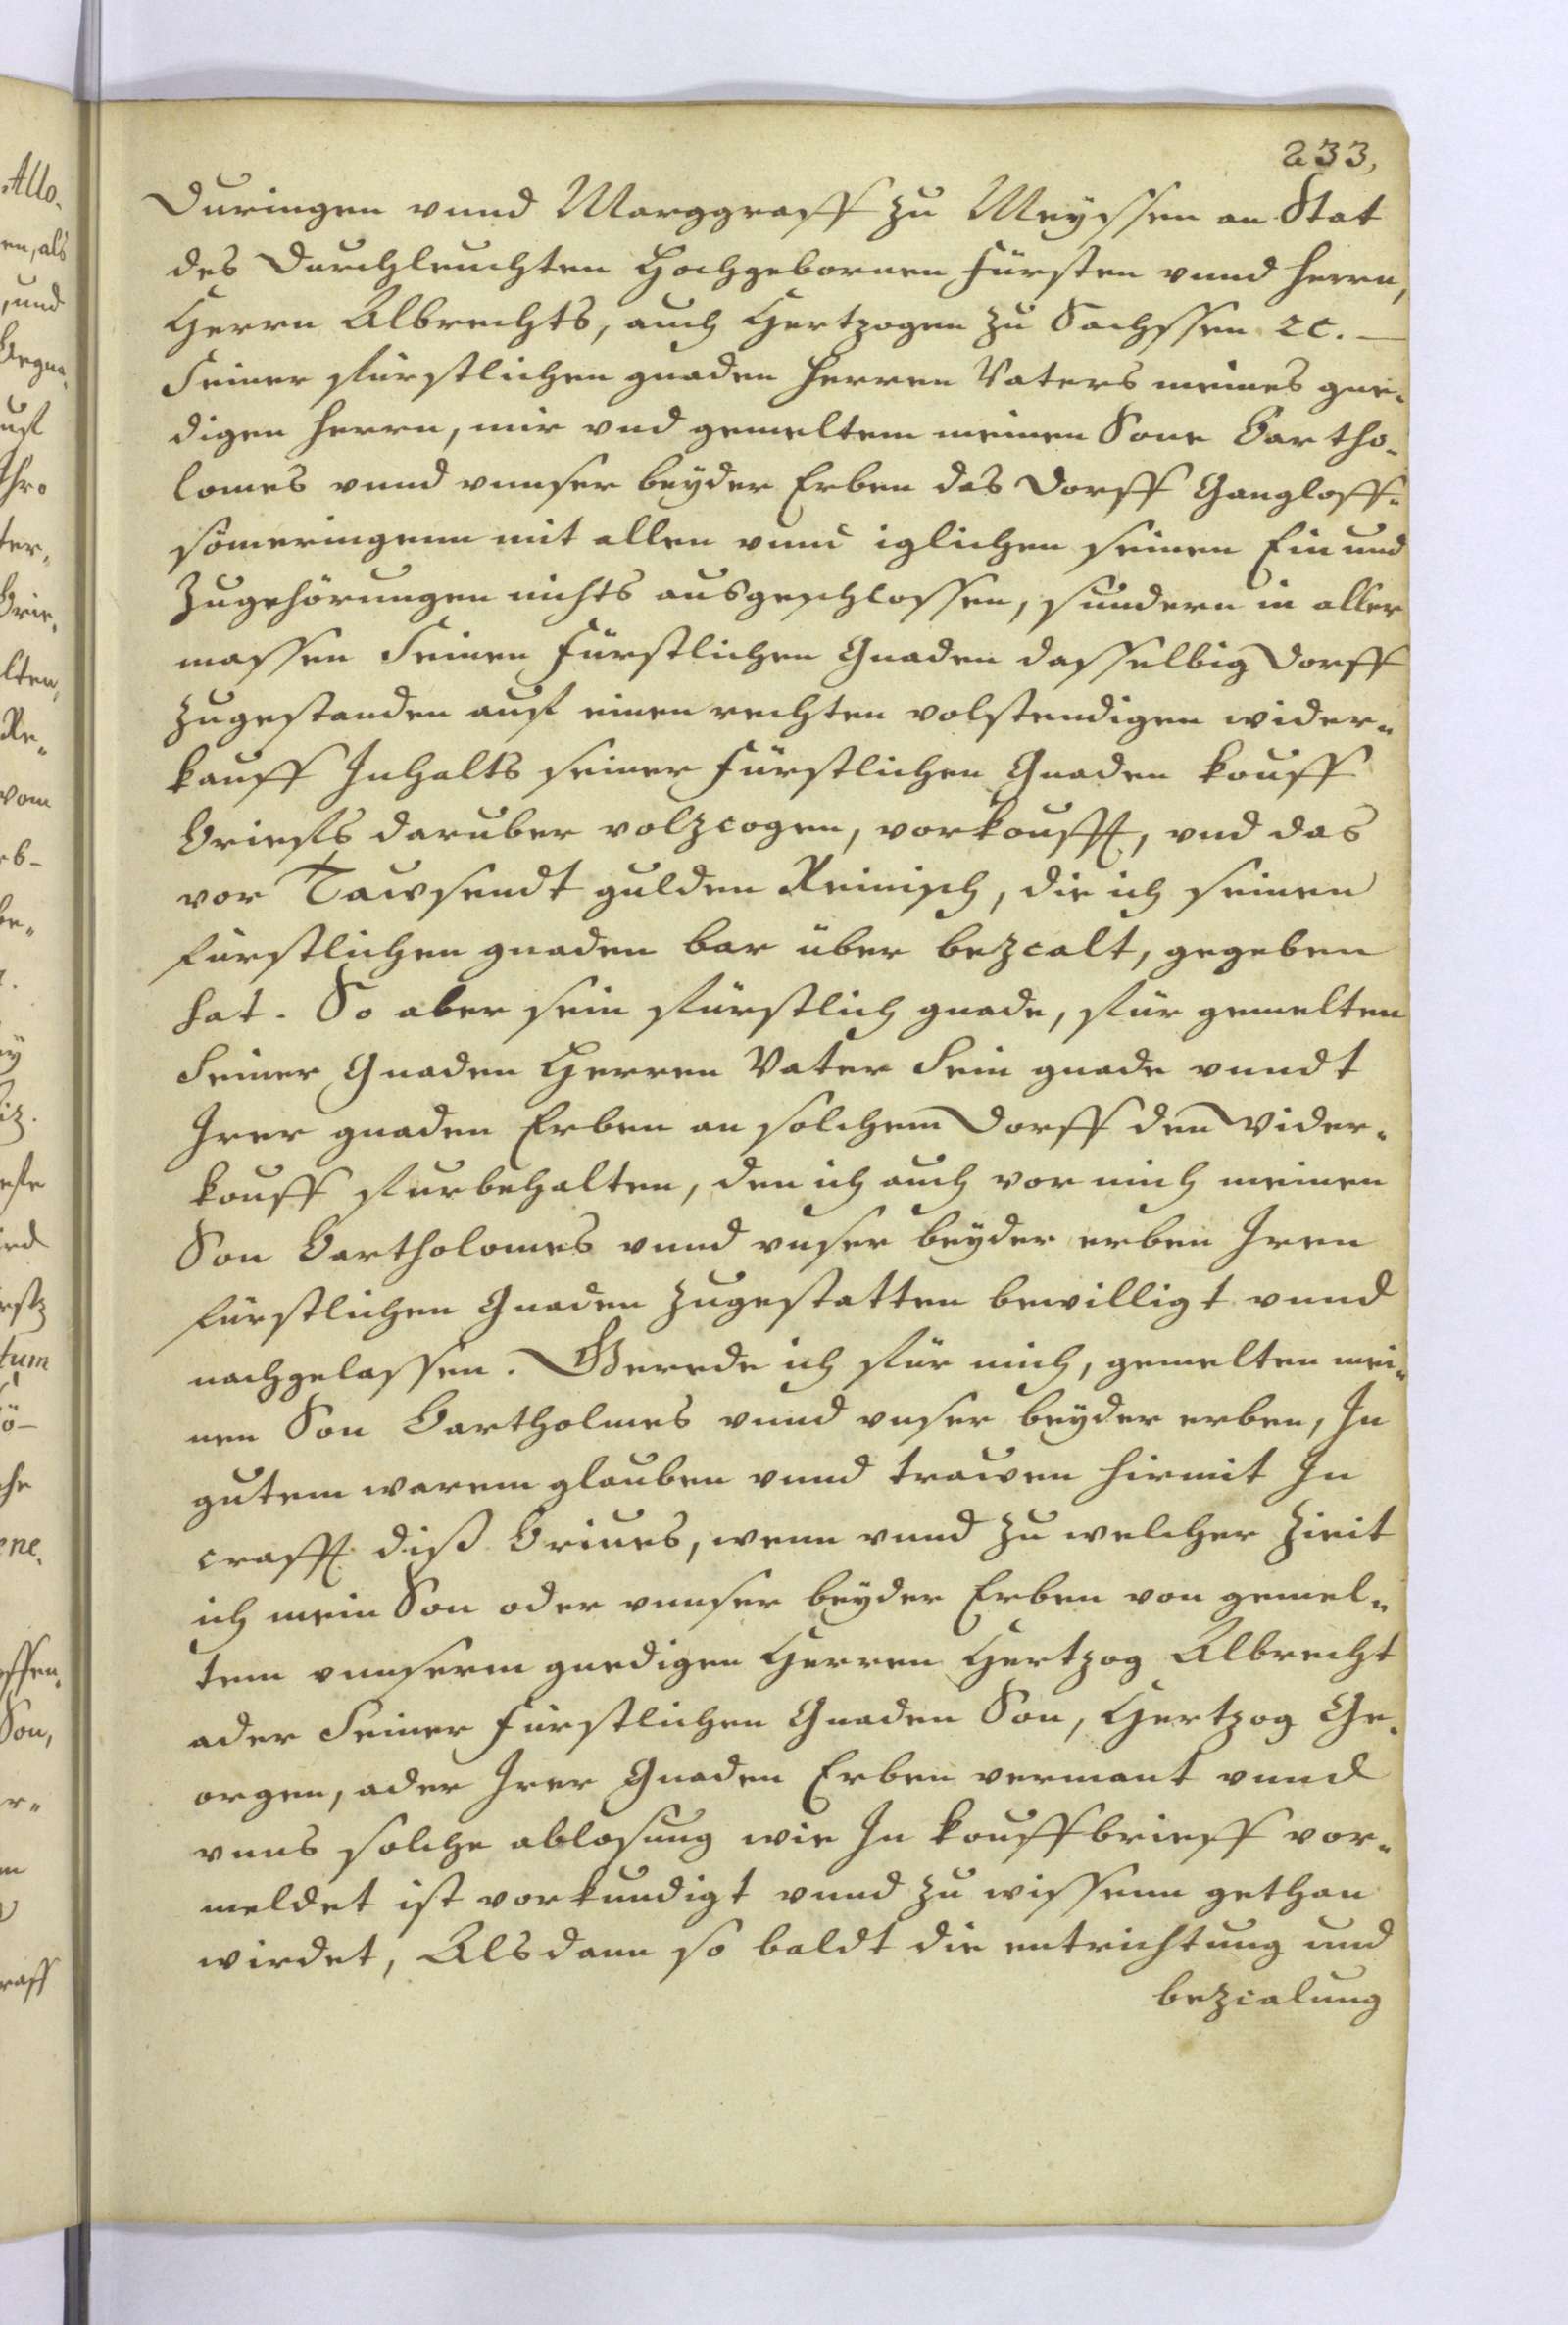 233,
Duringen vnnd Marggraff zu Meyssen an Stat
des Durchleuchten Hochgebornen Fürsten vnnd Herrn,
Herrn Albrechts, auch Hertzogen zu Sachssen ꝛc. —
Seiner fürstlichen gnaden Herren Vaters meines gne-
digen Herrn, mir vnd gemeltem meinen Sone Bartho-
lomes vnnd vnnser beyder Erben das Dorff Gangloff-
sömeringenn mit allen vnnd iglichen seinen Ein und
Zugehörungen nichts ausgeschlossen, sundern in aller
massen Seinen Fürstlichen Gnaden dasselbig Dorff
zugestanden auf einen rechten volstendigen wider-
kauff Inhalts seiner Fürstlichen Gnaden kouff
Brieffs daruber volzcogen, vorkoufft, vnd das
vor Tawsendt gulden Reinisch, die ich seinen
fürstlichen gnaden bar über bezcalt, gegeben
hat. So aber sein fürstlich gnade, für gemelten
Seiner Gnaden Herren Vater Sein gnade vnndt
Irer gnaden Erben an solchem Dorff den Wider-
kouff furbehalten, den ich auch vor mich meinen
Son Bartholomes vnnd vnser beyder erben Iren
fürstlichen Gnaden zugestatten bewilligt vnnd
nachgelassen. Gerede ich für mich, gemelten mei-
nen Son Bartholmes vnnd vnser beyder erben, In
gutem warem glauben vnnd trawen hirmit In
crafft diß Briues, wenn vnnd zu welcher Zieit
ich mein Son oder vnnser beyder Erben von gemel-
tem vnnserm gnedigen Herren Hertzog Albrecht
ader Seiner Fürstlichen Gnaden Son, Hertzog Ge-
orgen, ader Irer Gnaden Erben vermant vnnd
vnns solche ablosung wie In kouffbrieff vor-
meldet ist vorkundigt vnnd zu wissenn gethan
wirdet, Alsdann so baldt die entrichtung und
bezcalung